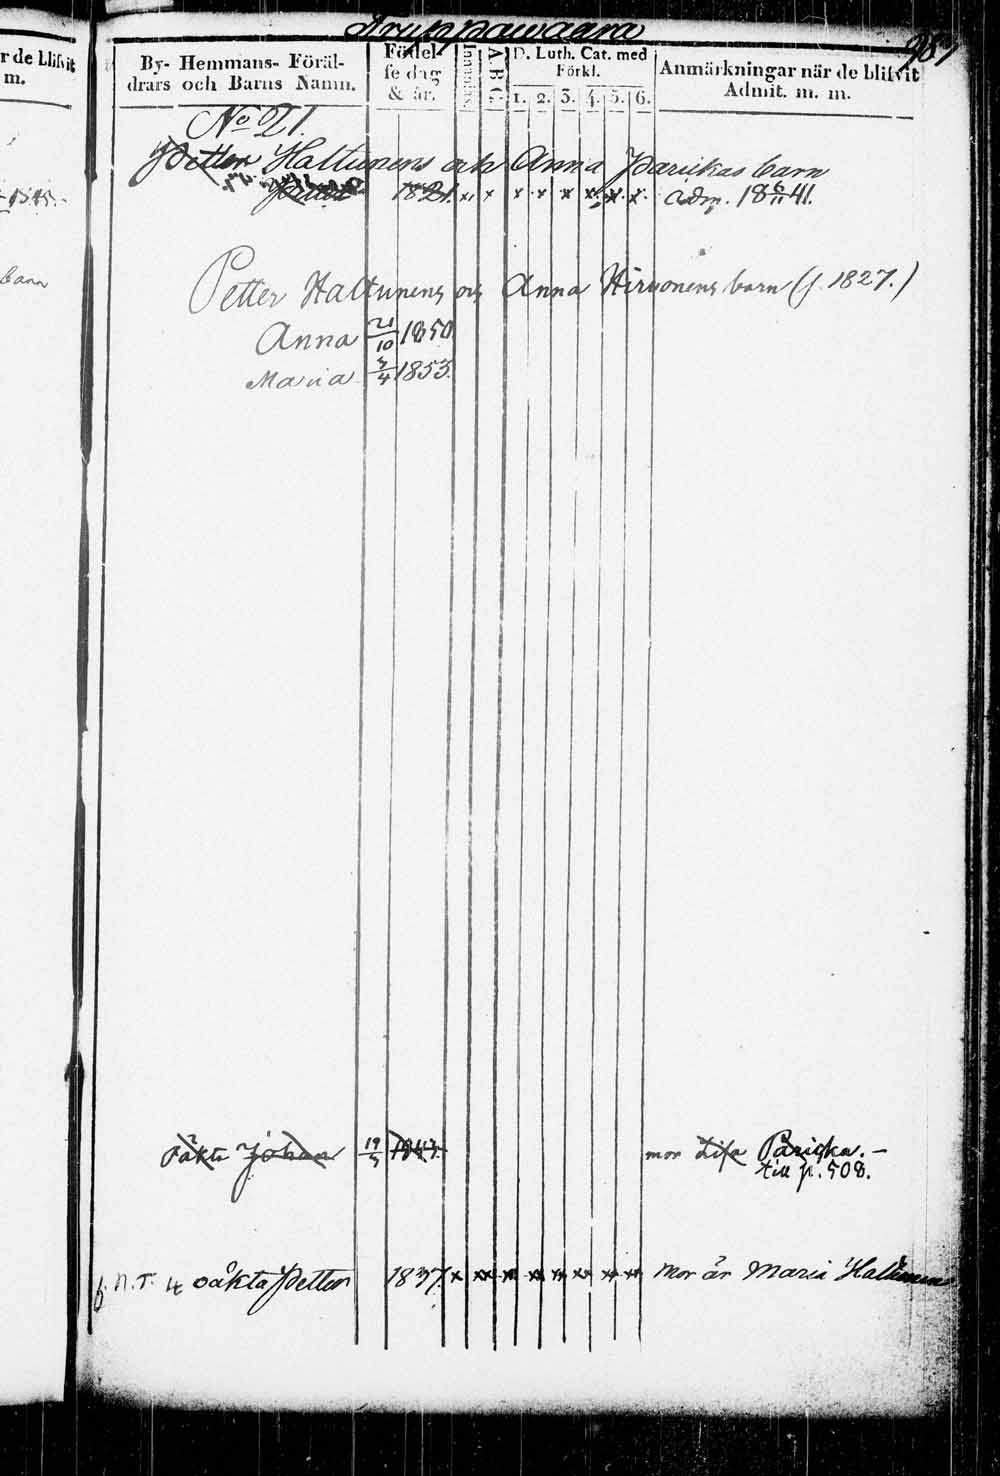 r de blifvit
m.
1545.
barn
987
By- Hemmans- Föräl-
drars och Barns Namn.
Födel-
se dag
& år.
Innanläs.
A B C.
D. Luth. Cat. med
Förkl.
1. 2. 3. 4. 5. 6.
Anmärkningar när de blifvit
Admit. m. m.
No 21.
Petter Haltunens och Anna Parikas barn
Petter 1821. x x x x x x x x x adm. 18 6/11 41.
Petter Haltunens och Anna Hirvonens barn (f. 1827.)
Anna 21/10 1850.
Maria 3/4 1853.
oäkta Johan 19/5 mor Lisa Pariska. –
till p. 508.
f. N.T. 4 oäkta Petter 1837. x xx x xx xx xx xx xx mor är Maria Haltunen